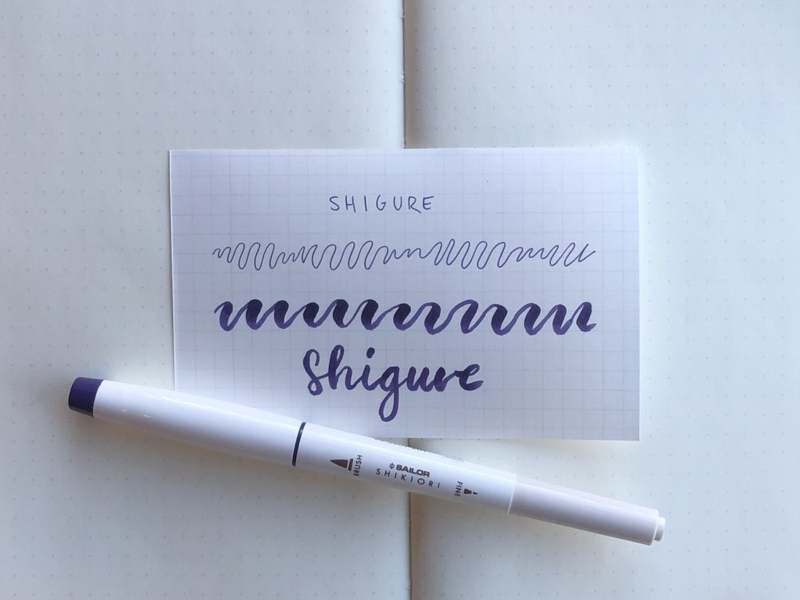 SHIGURE
Shigure
BRUSH
SAILOR
SHIKIORI
FINE